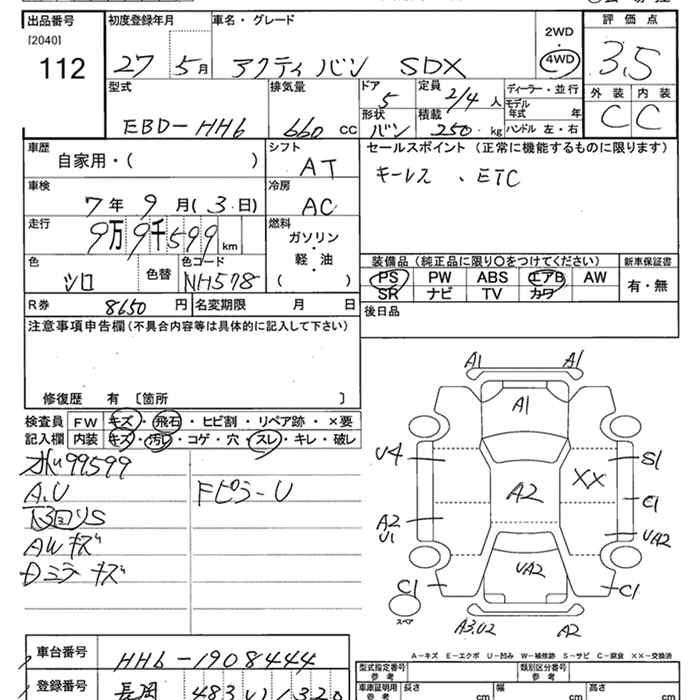 出品番号 初度登録年月 車名・グレード 2WD 評価点
[2040] 112 27 5月 アクティ バン SDX 4WD 3.5
型式 排気量 ドア 5 定員 2/4人 ディーラー・並行 外装 内装
EBD-HH6 660 CC 形状 バン 積載 250 kg モデル年式 年 C C
ハンドル 左・右
車歴 シフト セールスポイント (正常に機能するものに限ります)
自家用・( ) AT キーレス 、ETC
車検 冷房
7年 9月(3日) AC
走行 燃料
9万9千599km ガソリン・軽・油 ( )
色 色替 色コード 装備品(純正品に限り○をつけてください) 新車保証書
シロ NH578 PS PW ABS エアB AW 有・無
SR ナビ TV カワ
R券 8650円 名変期限 月 日 後日品
注意事項申告欄(不具合内容等は具体的に記入して下さい)
修復歴 有 [箇所 ]
検査員 FW キズ・飛石・ヒビ割・リペア跡・×要
記入欄 内装 キズ・汚れ・コゲ・穴・スレ・キレ・破レ
99599
A.U Fピラ-U
AWキズ
Dミラーキズ
A1 A1
A1
U4 S1
XX
A2 C1
A2 U1 UA2
UA2
C1 C1
スペア
A3.U2 A2
A-キズ E-エクボ U-凹み W-補修跡 S-サビ C-腐食 XX-交換済
車台番号 HH6-1908444 型式指定番号 参考 類別区分番号 参考
登録番号 長岡 483 い 1320 車庫証明用 参考 長さ cm 幅 cm 高さ cm